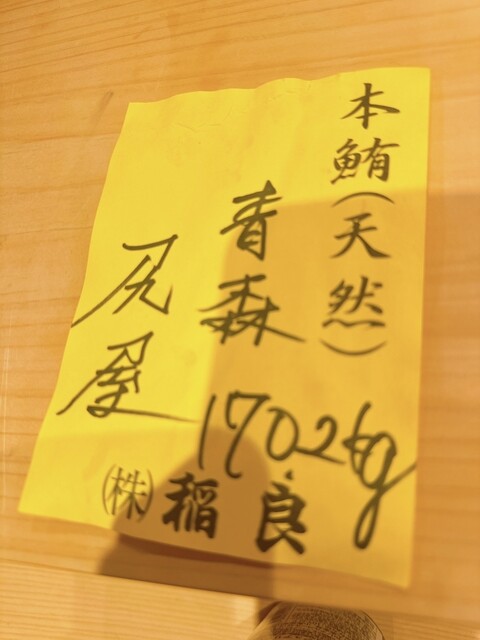 本鮪(天然)
青森
尻屋
170.2kg
㈱稲良